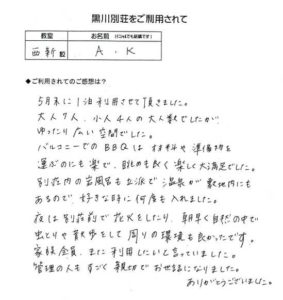 黒川別荘をご利用されて
教室
お名前(イニシャルでも結構です)
西新
A.K
◆ご利用されてのご感想は?
5月末に1泊利用させて頂きました。
大人7人、小人4人の大人数でしたが、
ゆったり ない空間でした。
バルコニーでのBBQは 材料や準備物を
運ぶのにも楽で、眺めも良く楽しく大満足でした。
別荘内の岩風呂も立派で温泉が敷地内にも
あるので、好きな時に何度も入れました。
夜は別荘前で花火をしたり、朝早く自然の中で
虫とりや散歩をして周りの環境も良かったです。
家族全員、また利用したいと言っていました。
管理の人もすごく親切でお世話になりました。
ありがとうございました。